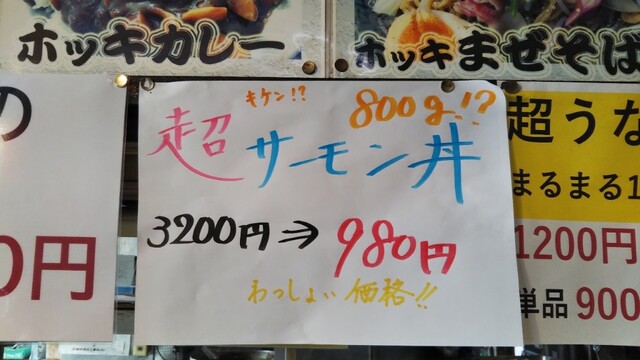 ホッキカレー
ホッキまぜそば
の
0円
キケン!?
800g!?
超サーモン丼
3200円⇒980円
わっしょい価格!!
超うな
まるまる1
1200円
単品900